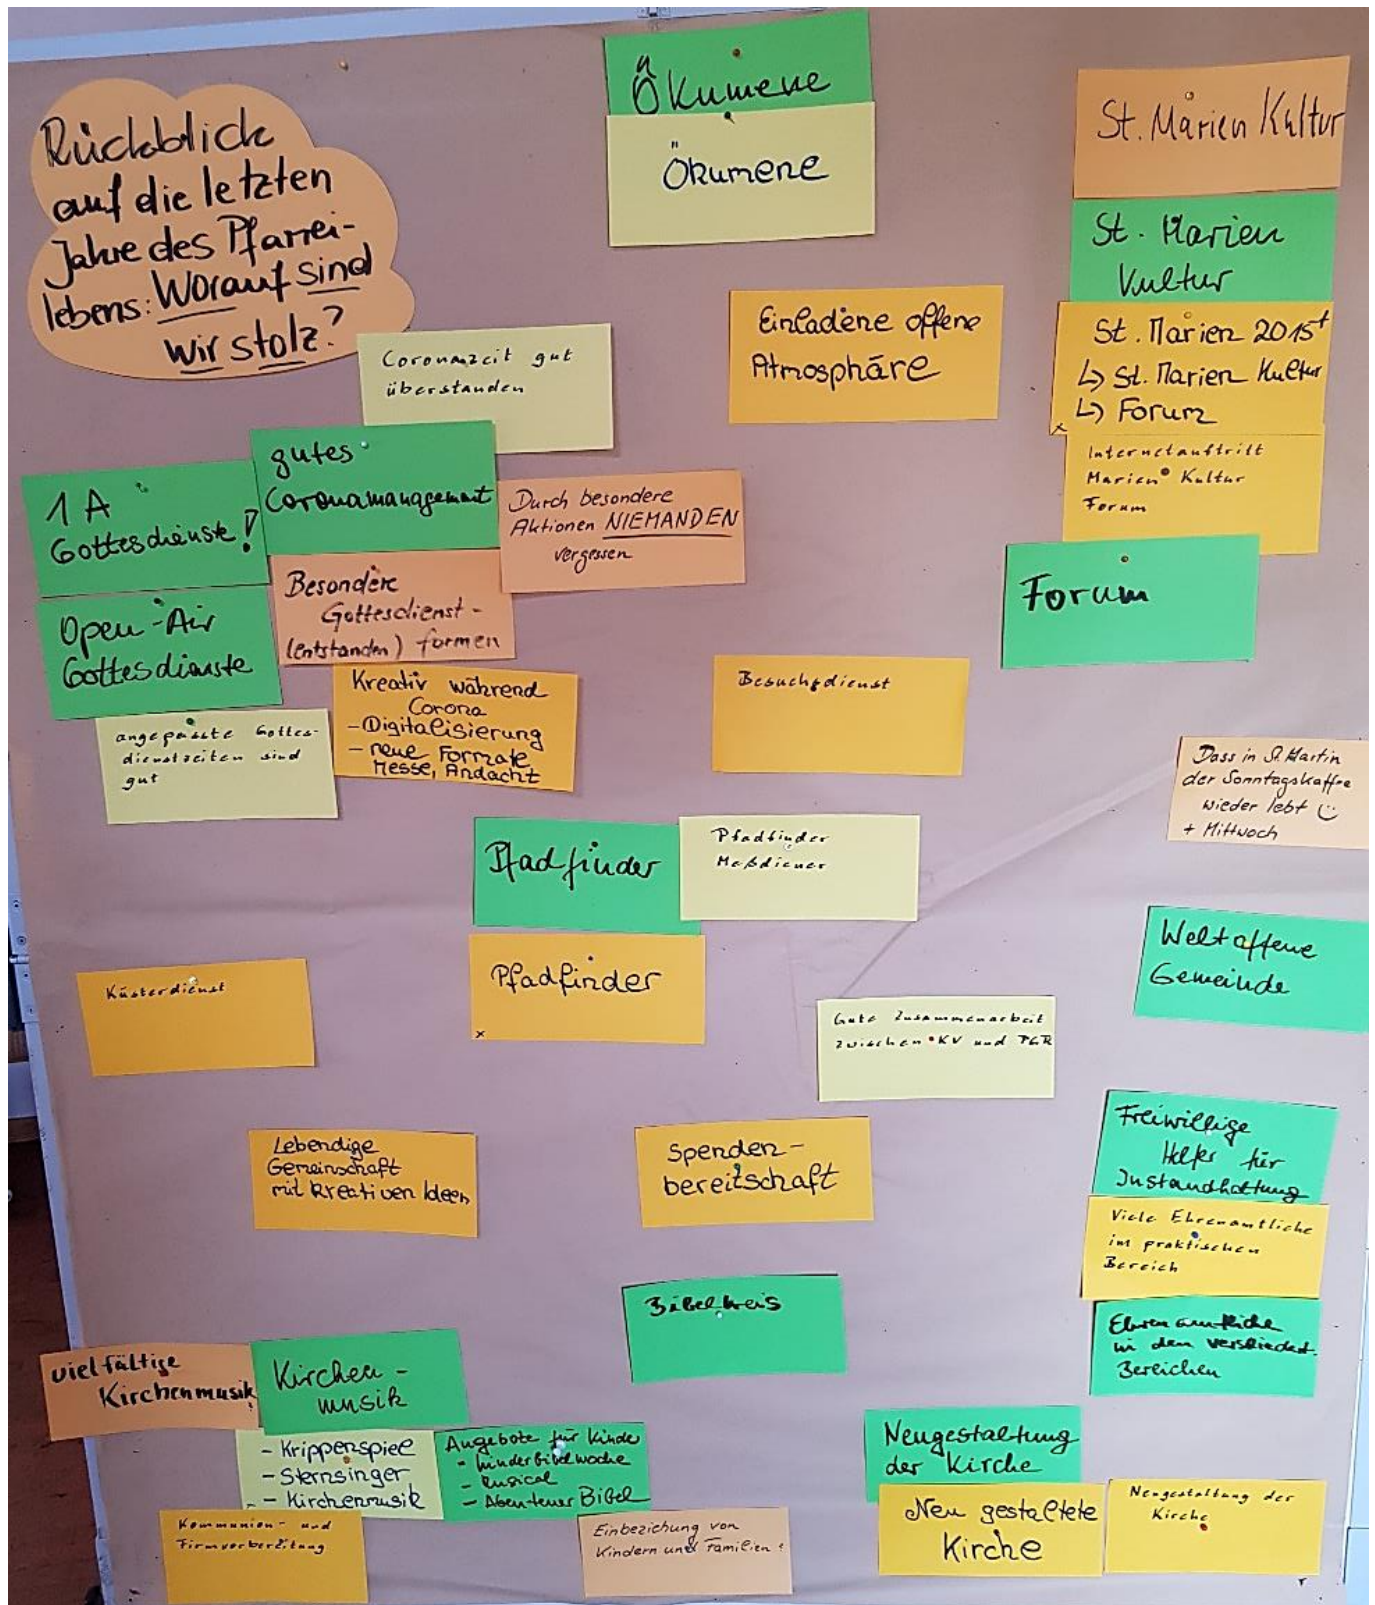 Rückblick
auf die letzten
Jahre des Pfarrei-
lebens: Worauf sind
wir stolz?
Ökumene
Ökumene
St. Marien Kultur
St. Marien
Kultur
St. Marien 2015+
↳ St. Marien Kultur
↳ Forum
Internetauftritt
Marien Kultur
Forum
Forum
Einladene offene
Atmosphäre
Coronazeit gut
überstanden
gutes
Coronamanagement
1A
Gottesdienste!
Durch besondere
Aktionen NIEMANDEN
vergessen
Besondere
Gottesdienst-
(entstanden) formen
Open-Air
Gottesdienste
Kreativ während
Corona
- Digitalisierung
- neue Formate
Messe, Andacht
angepasste Gottes-
dienstzeiten sind
gut
Besuchsdienst
Dass in St. Martin
der Sonntagskaffee
wieder lebt ☺
+ Mittwoch
Pfadfinder
Pfadfinder
Meßdiener
Pfadfinder
x
Küsterdienst
Weltoffene
Gemeinde
Gute Zusammenarbeit
zwischen KV und PGR
Lebendige
Gemeinschaft
mit kreativen Ideen
Spenden-
bereitschaft
Freiwillige
Helfer für
Instandhaltung
Viele Ehrenamtliche
im praktischen
Bereich
Ehrenamtliche
in den verschiedet.
Bereichen
Bibelkreis
vielfältige
Kirchenmusik
Kirchen-
musik
- Krippenspiel
- Sternsinger
- Kirchenmusik
Angebote für Kinder
- Kinderbibelwoche
- Musical
- Abenteuer Bibel
Kommunion- und
Firmvorbereitung
Einbeziehung von
Kindern und Familien!
Neugestaltung
der Kirche
Neu gestaltete
Kirche
Neugestaltung der
Kirche